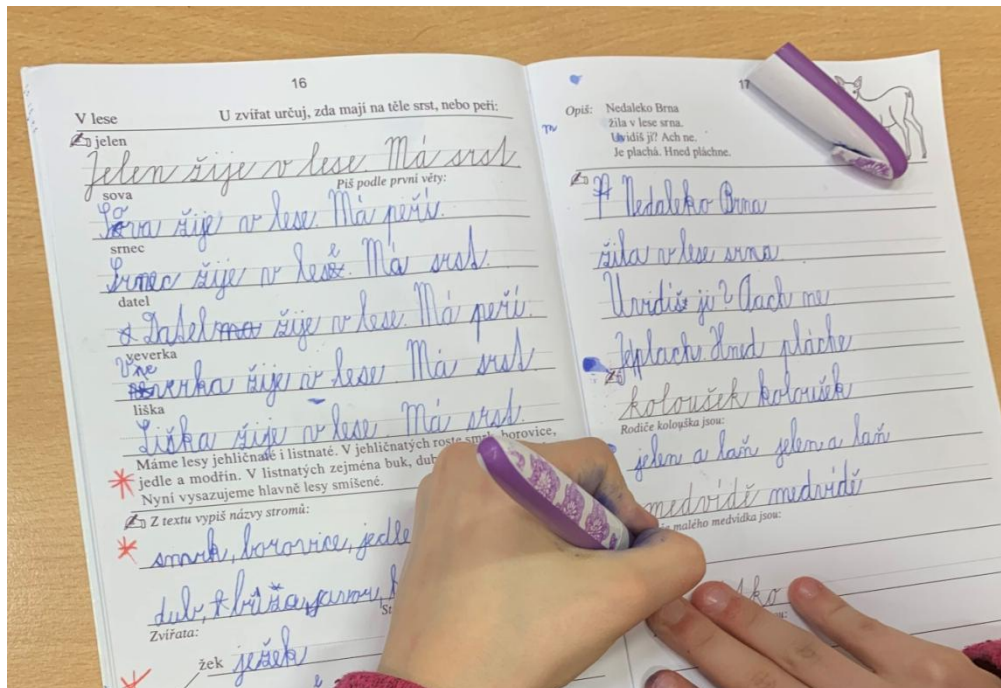 16
V lese U zvířat určuj, zda mají na těle srst, nebo peří:
jelen
Jelen žije v lese. Má srst.
Piš podle první věty:
sova
Sova žije v lese. Má peří.
srnec
Srnec žije v lese. Má srst.
datel
Datel žije v lese. Má peří.
veverka
žije v lese. Má srst.
liška
Liška žije v lese. Má srst.
Máme lesy jehličnaté i listnaté. V jehličnatých roste smrk, borovice,
jedle a modřín. V listnatých zejména buk, dub
Nyní vysazujeme hlavně lesy smíšené.
Z textu vypiš názvy stromů:
smrk, borovice, jedle
dub, bříza, javor,
St
Zvířata:
žek ježek
17
Opiš: Nedaleko Brna
žila v lese srna.
Uvidíš ji? Ach ne.
Je plachá. Hned pláchne.
Nedaleko Brna
žila v lese srna
Uvidiš ji? Aach ne
Jeplach. Hned pláche
koloušek koloušek
Rodiče kolouška jsou:
jelen a laň jelen a laň
medvídě medvídě
malého medvídka jsou: